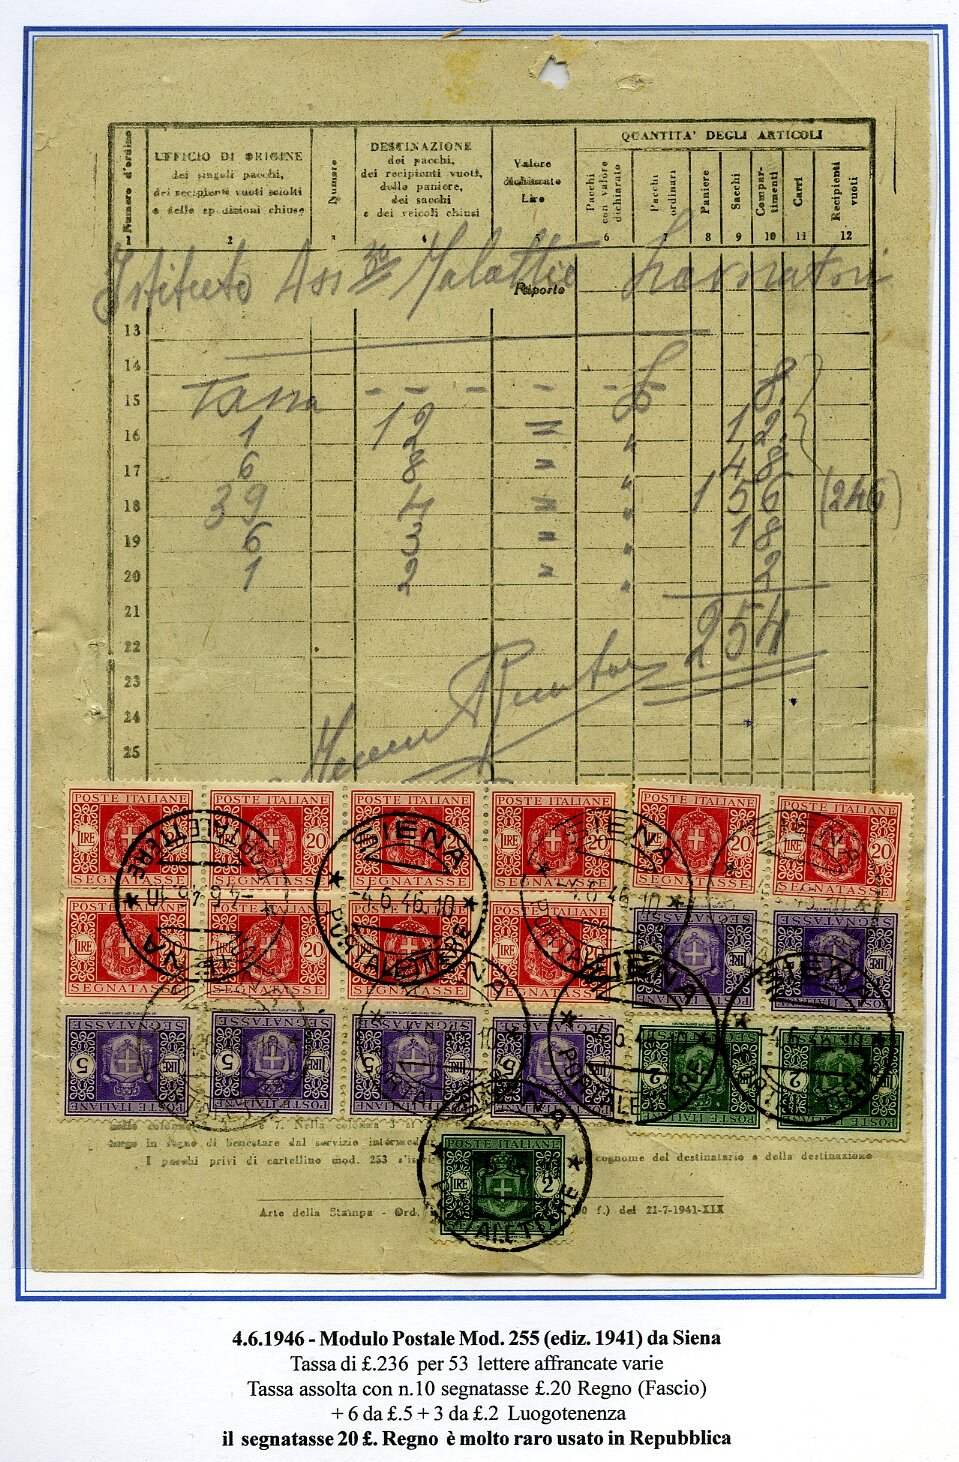 QUANTITA' DEGLI ARTICOLI
Numero d'ordine
UFFICIO DI ORIGINE
dei singoli pacchi,
dei recipienti vuoti sciolti
e delle spedizioni chiuse
Numero
DESTINAZIONE
dei pacchi,
dei recipienti vuoti,
delle paniere,
dei sacchi
e dei veicoli chiusi
Valore
dichiarato
Lire
Pacchi
con valore
dichiarato
Pacchi
ordinari
Paniere
Sacchi
Compar-
timenti
Carri
Recipienti
vuoti
1 2 3 4 5 6 7 8 9 10 11 12
Istituto Ass
Malattie
Riporto
13
14
Tassa £ 8
15
1 12 = " 12
16
6 8 = " 48
17
39 4 = " 156 (246)
18
6 3 = " 18
19
1 2 = " 2
20
254
21
22
23
24
25
POSTE ITALIANE
LIRE 20
SEGNATASSE
POSTE ITALIANE
LIRE 5
SEGNATASSE
POSTE ITALIANE
LIRE 2
SEGNATASSE
SIENA
-4.6.46.10
PORTALETTERE
7. Nella colonna 3 si
in segno di benestare dal servizio
I pacchi privi di cartellino mod. 253
cognome del destinatario e della destinazione
Arte della Stampa - Ord.
f.) del 21-7-1941-XIX
4.6.1946 - Modulo Postale Mod. 255 (ediz. 1941) da Siena
Tassa di £.236 per 53 lettere affrancate varie
Tassa assolta con n.10 segnatasse £.20 Regno (Fascio)
+ 6 da £.5 + 3 da £.2 Luogotenenza
il segnatasse 20 £. Regno è molto raro usato in Repubblica